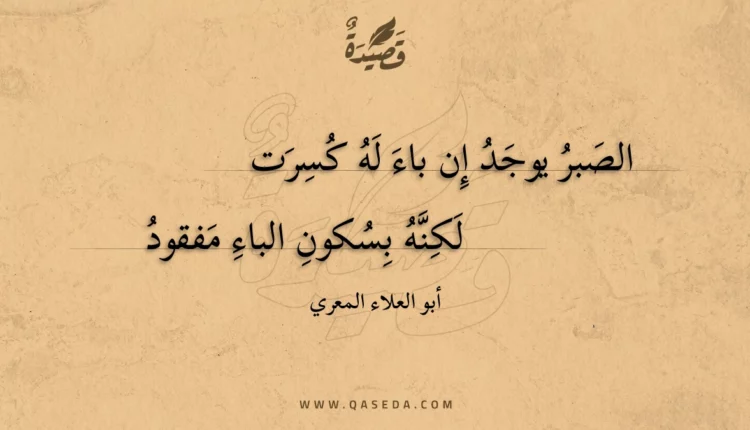 قَصِيدَةٌ
الصَبرُ يوجَدُ إِن باءَ لَهُ كُسِرَت
لَكِنَّهُ بِسُكونِ الباءِ مَفقودُ
أبو العلاء المعري
WWW.QASEDA.COM